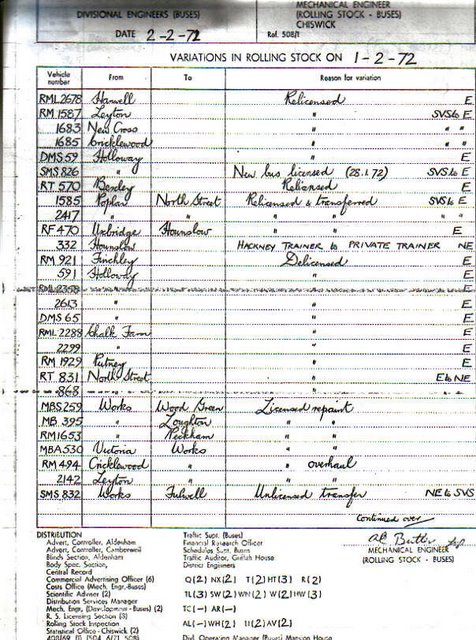 DIVISIONAL ENGINEERS (BUSES)
MECHANICAL ENGINEER
(ROLLING STOCK - BUSES)
CHISWICK
DATE 2-2-72 Ref. 508/1
VARIATIONS IN ROLLING STOCK ON 1-2-72
Vehicle number From To Reason for variation
RML 2678 Hanwell Relicensed E
RM 1587 Leyton " SVS to E
1683 New Cross " " "
1685 Cricklewood " " "
DMS 59 Holloway " E
SMS 826 " New bus licensed (28.1.72) SVS to E
RT 570 Bexley Relicensed E
1585 Poplar North Street Relicensed & transferred SVS to E
2417 " " " " " E
RF 470 Uxbridge Hounslow " " E
332 Hounslow HACKNEY TRAINER to PRIVATE TRAINER NE
RM 921 Finchley Delicensed E
591 Holloway " E
RML 2358 " " E
2613 " " E
DMS 65 " " E
RML 2288 Chalk Farm " E
2299 " " E
RM 1929 Putney " E
RT 831 North Street " E to NE
868 " " " "
MBS 259 Works Wood Green Licensed repaint
MB 395 " Loughton " "
RM 1653 " Peckham " "
MBA 530 Victoria Works " "
RM 494 Cricklewood " " overhaul
2142 Leyton " " "
SMS 832 Works Fulwell Unlicensed transfer NE to SVS
Continued over
MECHANICAL ENGINEER
(ROLLING STOCK - BUSES)
DISTRIBUTION
Advert. Controller, Aldenham
Advert. Controller, Camberwell
Blinds Section, Aldenham
Body Spec. Section,
Central Record
Commercial Advertising Officer (6)
Costs Office (Mech. Engr. Buses)
Scientific Adviser (2)
Distribution Services Manager
Mech. Engr. (Development - Buses) (2)
R. S. Licensing Section (3)
Rolling Stock Inspection
Statistical Office - Chiswick (2)
Traffic Supt. (Buses)
Financial Research Officer
Schedules Supt. Buses
Traffic Auditor, Griffith House
District Engineers
Q(2) NX(2) T(2) HT(3) R(2)
TL(3) SW(2) WN(2) W(2) HW(3)
TC(-) AR(-)
AL(-) WH(2) U(2) AV(2)
Divl. Operating Manager (Buses) Mansion House